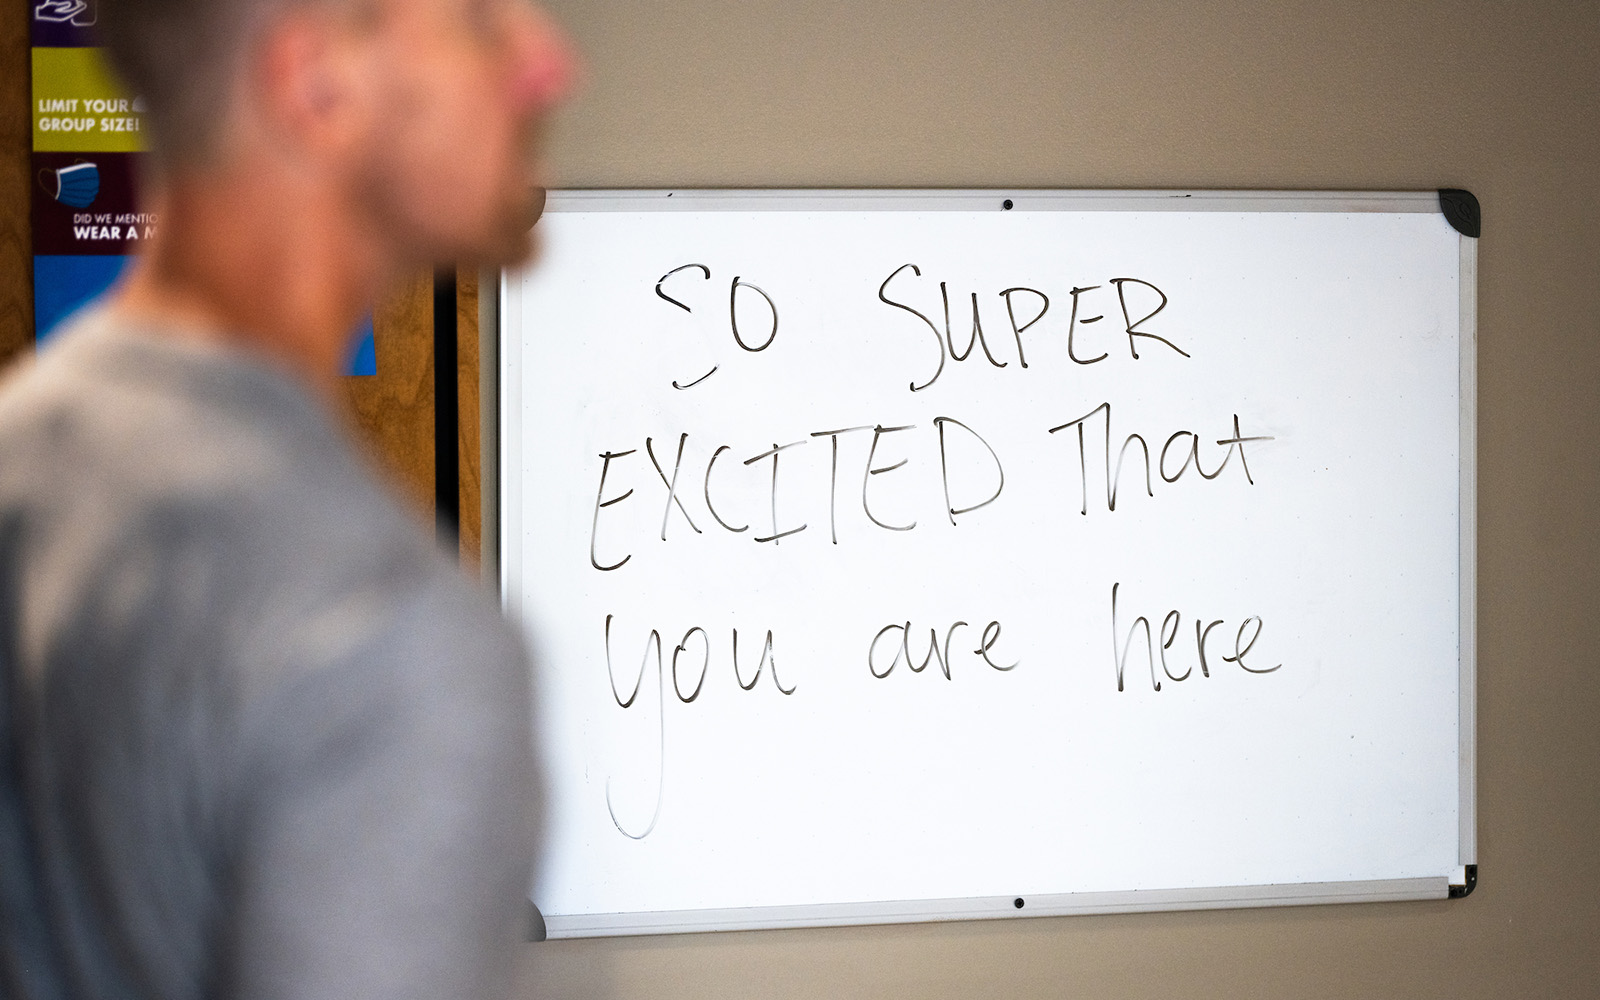 LIMIT YOUR
GROUP SIZE!
DID WE MENTIO
WEAR A M
SO SUPER
EXCITED That
you are here